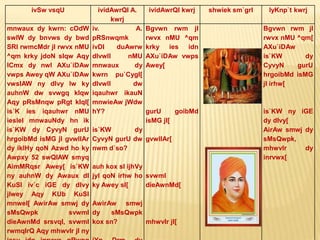 ivSw vsqU
ividAwrQI A. kwrj
ividAwrQI kwrj
shwiek sm`grI
lyKnp`t kwrj
mnwaux dy kwrn: cOdW
swlW dy bnvws dy bwd
SRI rwmcMdr jI rwvx nMU
^qm krky jdoN slqw Aqy
lCmx dy nwl AXu`iDAw
vwps Awey qW AXu`iDAw
vwslAW ny dIvy lw ky
auhnW dw svwgq kIqw
Aqy pRsMnqw pRgt kIqI[
is`K ies iqauhwr nMU
iesleI mnwauNdy hn ik
is`KW dy CyvyN gurU
hrgoibMd isMG jI gvwlIAr
dy iklHy qoN Azwd ho ky
Awpxy 52 swQIAW smyq
AimMRqsr Awey[ is`KW
ny auhnW dy Awaux dI
KuSI iv`c iGE dy dIvy
jlwey Aqy KUb KuSI
mnweI[ AwirAw smwj dy
sMsQwpk svwmI
dieAwnMd srsvqI, svwmI
rwmqIrQ Aqy mhwvIr jI ny
iv. A.
pRSnwqmk
ivDI duAwrw
dIvwlI nMU
mnwaux dy
kwrn pu`CygI[
dIvwlI dw
iqauhwr ikauN
mnwieAw jWdw
hY?
is`KW dy
CyvyN gurU dw
nwm d`so?
auh kox sI ijhVy
jyl qoN irhw ho
ky Awey sI[
AwirAw smwj
dy sMsQwpk
kox sn?
Bgvwn rwm jI
rwvx nMU ^qm
krky ies idn
AXu`iDAw vwps
Awey[
gurU goibMd
isMG jI[
gvwlIAr[
svwmI
dieAwnMd[
mhwvIr jI[
Bgvwn rwm jI
rwvx nMU ^qm[
AXu`iDAw
is`KW dy
CyvyN gurU
hrgoibMd isMG
jI irhw[
is`KW ny iGE
dy dIvy[
AirAw smwj dy
sMsQwpk,
mhwvIr dy
inrvwx[